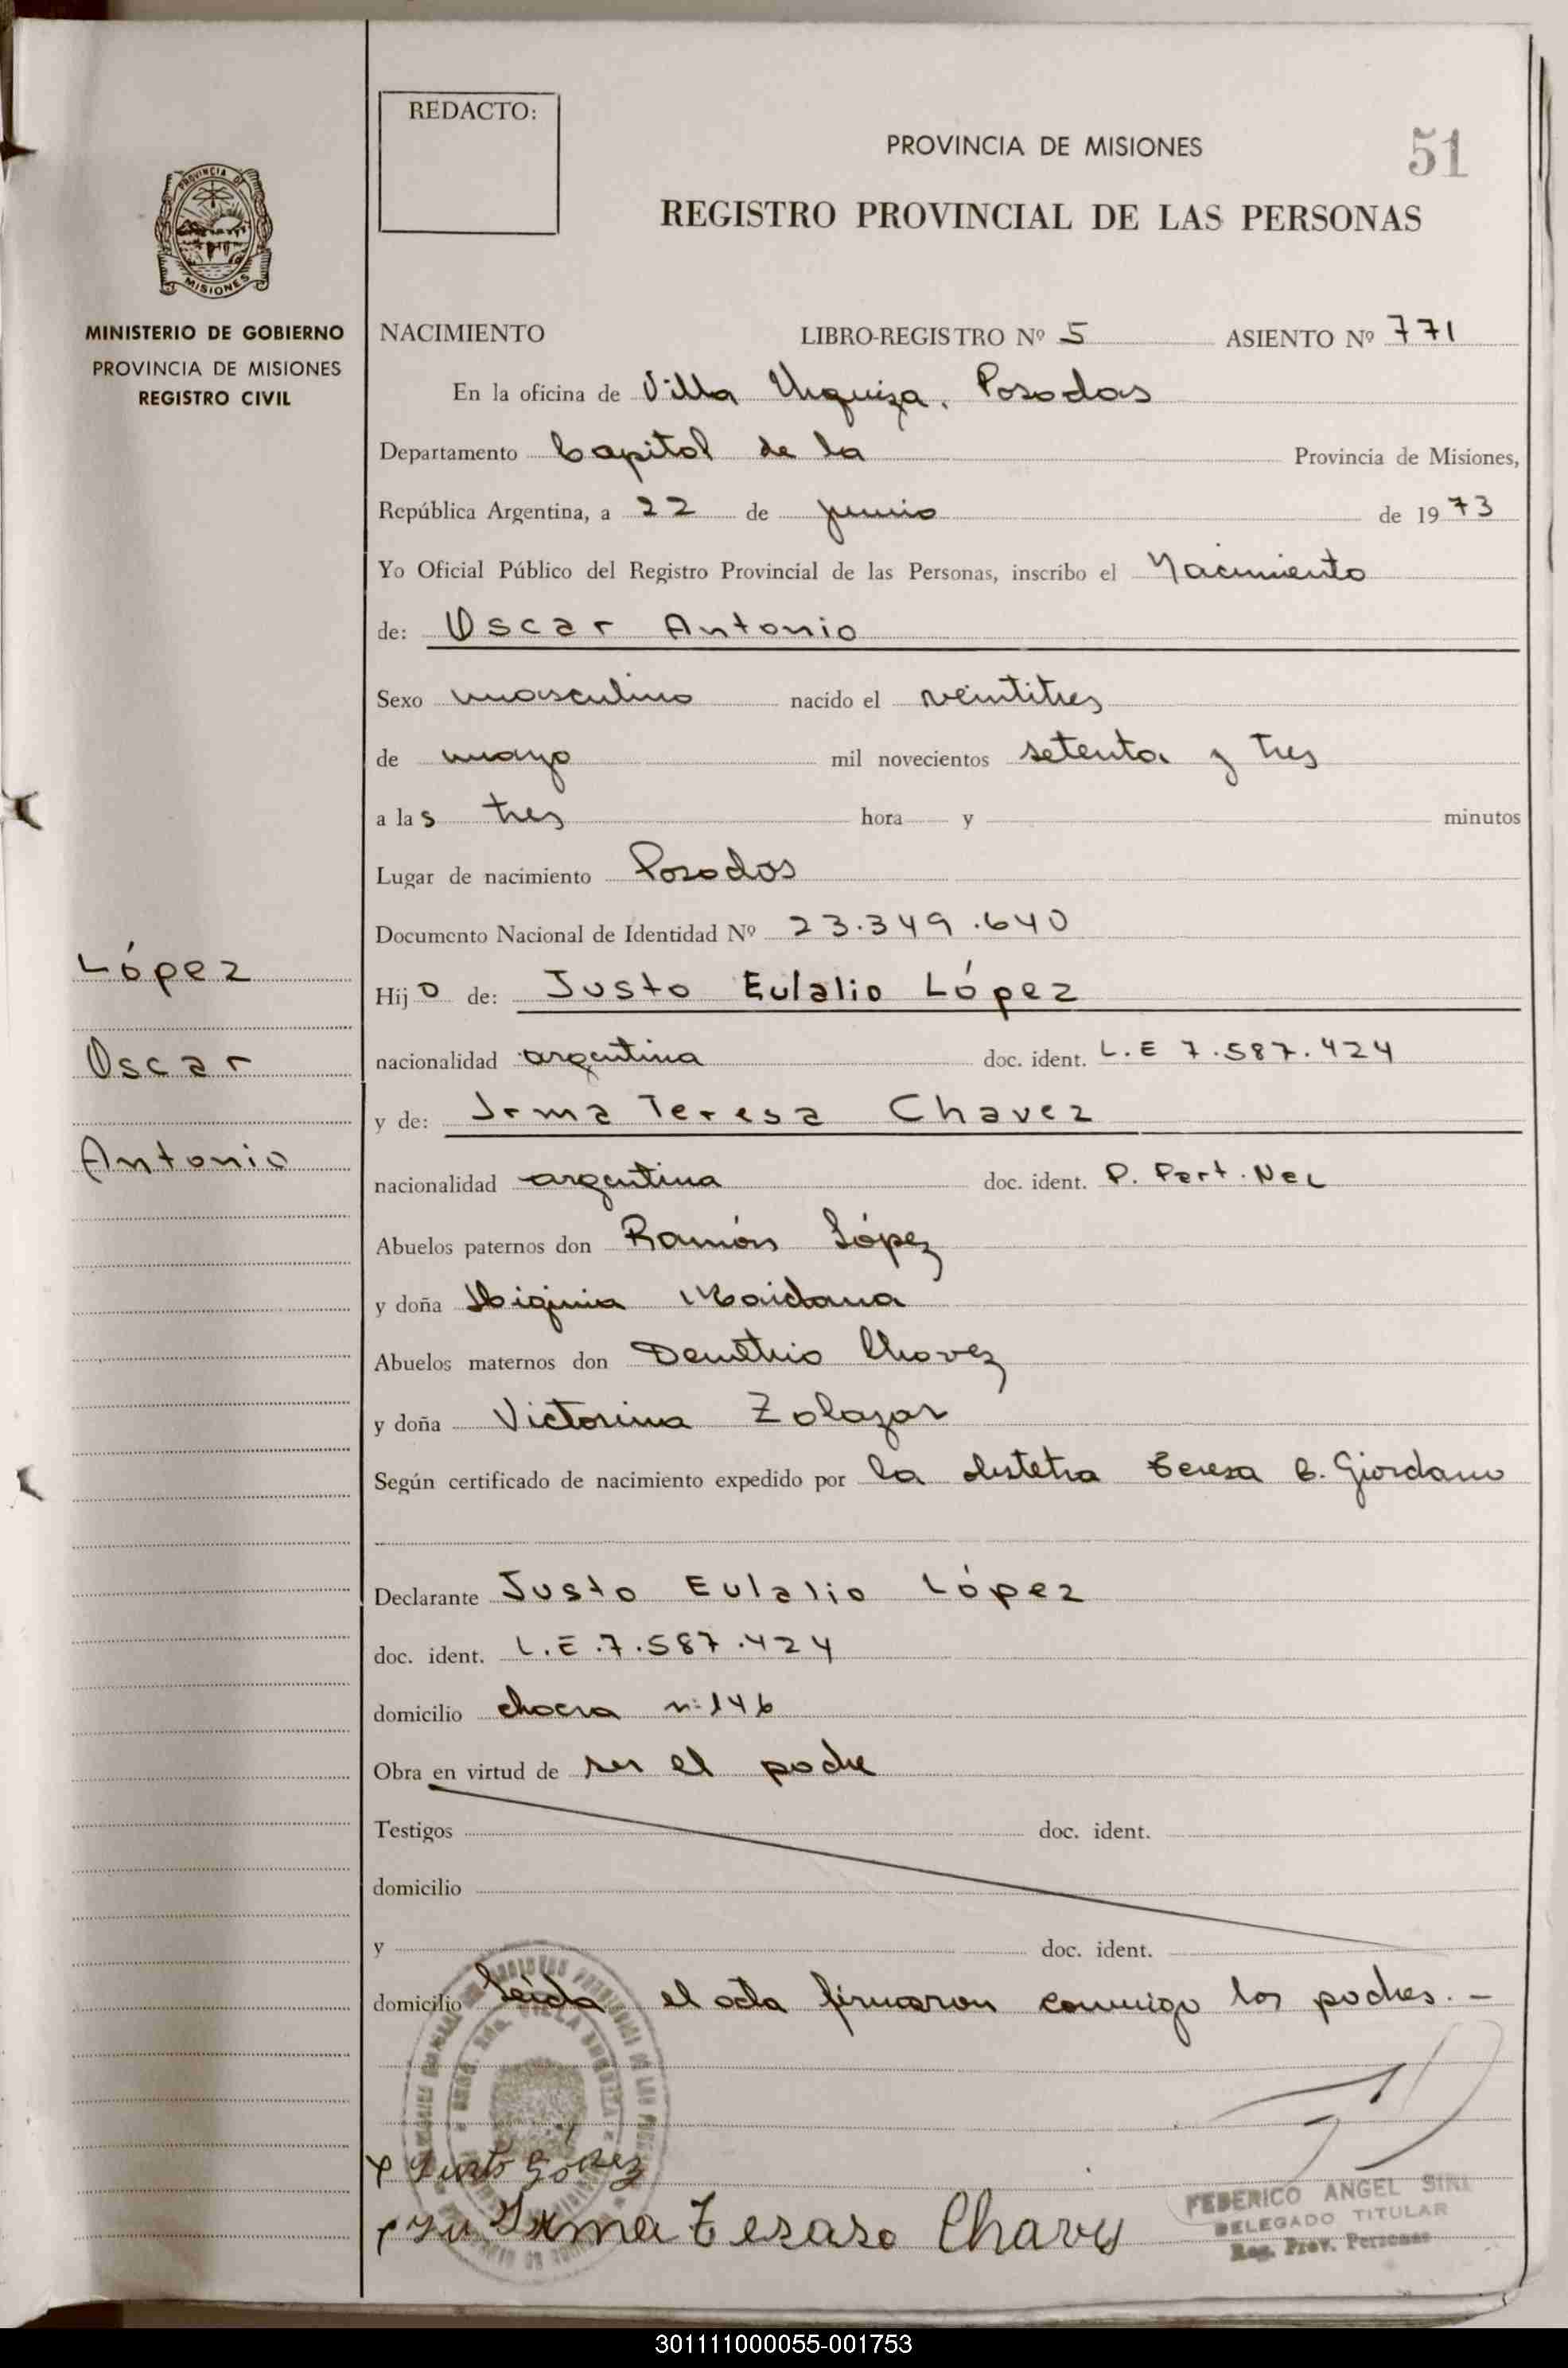 REDACTO:
PROVINCIA DE MISIONES
51
REGISTRO PROVINCIAL DE LAS PERSONAS
PROVINCIA DE
MISIONES
MINISTERIO DE GOBIERNO
PROVINCIA DE MISIONES
REGISTRO CIVIL
NACIMIENTO LIBRO-REGISTRO Nº 5 ASIENTO Nº 771
En la oficina de Villa Urquiza. Posadas
Departamento Capital de la Provincia de Misiones,
República Argentina, a 22 de junio de 1973
Yo Oficial Público del Registro Provincial de las Personas, inscribo el Nacimiento
de: Oscar Antonio
Sexo masculino nacido el veintitres
de mayo mil novecientos setenta y tres
a las tres hora y minutos
Lugar de nacimiento Posadas
Documento Nacional de Identidad Nº 23.349.640
López
Oscar
Antonio
Hijo de: Justo Eulalio López
nacionalidad argentina doc. ident. L.E 7.587.424
y de: Irma Teresa Chavez
nacionalidad argentina doc. ident. P. Part. Nac
Abuelos paternos don Ramón López
y doña Higinia Maidana
Abuelos maternos don Demetrio Chavez
y doña Victorina Zalazar
Según certificado de nacimiento expedido por la obstetra Teresa C. Giordano
Declarante Justo Eulalio López
doc. ident. L.E.7.587.424
domicilio chacra nº 146
Obra en virtud de ser el padre
Testigos doc. ident.
domicilio
y doc. ident.
domicilio Leida el acta firmaron conmigo los padres. -
x Justo López
Irma Teraso Chavez
FEDERICO ANGEL
DELEGADO TITULAR
Reg. Prov. Personas
301111000055-001753